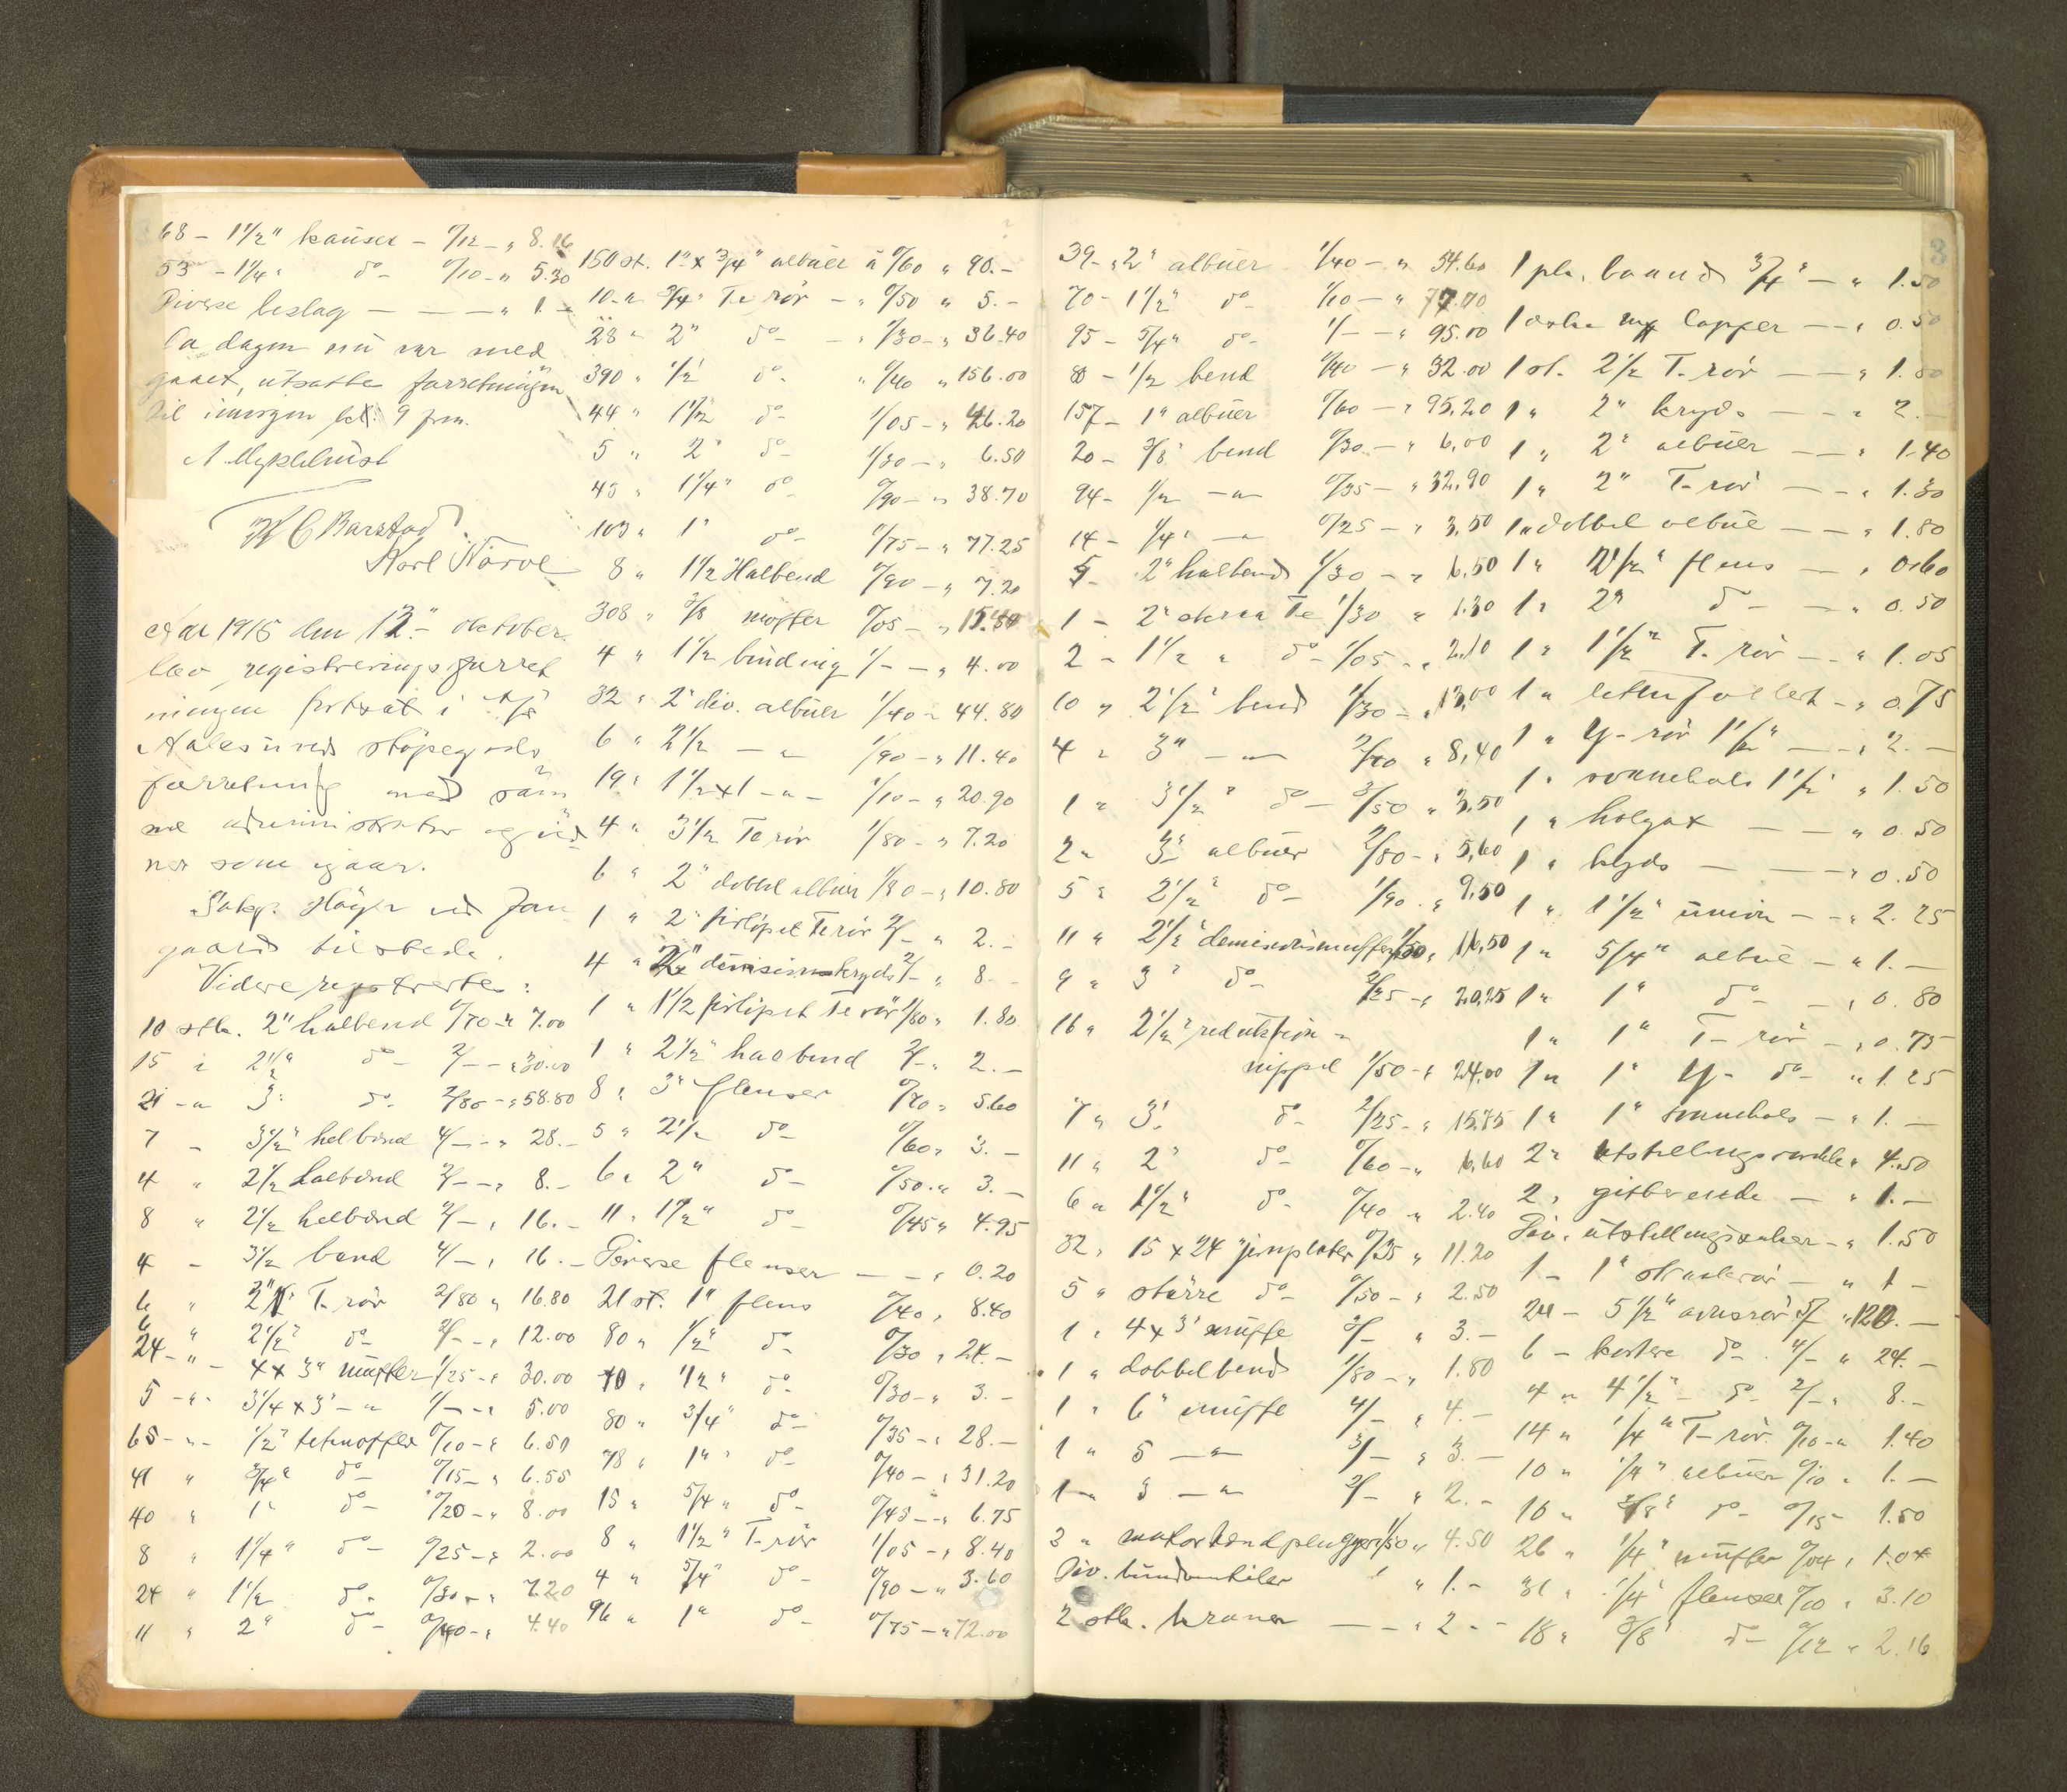 68 – 1 1/2" kauser – 0/12 – " 8.16
53 – 1 1/4" do – 0/10 – " 5.30
Diverse beslag – – – " 1. –
Da dagen nu var med
gaaet, utsattes forretningen
til imorgen kl. 9 fm.
A Myklebust
K C Barstad
Karl Nörve
Aar 1915 den 12.– oktober
blev registreringsforret
ningen fortsat i A/S
Aalesunds stöpegods
forretning med sam
me administrator og vid
ner som igaar.
Sakf. Höyer ved Jan
gaard tilstede.
Videre registrertes:
10 stk. 2" halbend 0/70 – " 7.00
15 " 2 1/2" do – 2/– – " 30.00
21 – " 3" do – 2/80 – " 58.80
7 – 3 1/2" helbend 4/– – " 28. –
4 " 2 1/2 halbend 2/– – " 8. –
8 " 2 1/2 helbend 2/– " 16. –
4 – 3 1/2 bend 4/– " 16. –
6 " 3" T- rör 2/80 " 16.80
6 " 2 1/2" do – 2/– – " 12.00
24 – " – 4 x 3" muffer 1/25 – " 30.00
5 – " – 3 1/4 x 3" – " 1/– – " 5.00
65 – " – 1/2" tetmoffer 0/10 – " 6.50
41 " 3/4" do – 0/15 – " 6.55
40 " 1" do – 0/20 – " 8.00
8 " 1 1/4" do – 0/25 – " 2.00
24 " 1 1/2 do – 0/30 – " 7.20
11 " 2" do – 0/40 – " 4.40
150 st. 1" x 3/4" albuer a 0/60 " 90. –
10 – " 3/4" Te rör – " 0/50 " 5. –
28 " 2" do – – " 1/30 – " 36.40
390 " 1/2" do – " 0/40 " 156.00
44 " 1 1/2 do – 1/05 – " 46.20
5 " 2" do – 1/30 – " 6.50
43 " 1 1/4" do – 0/90 – " 38.70
103 " 1" do – 0/75 – " 77.25
8 " 1 1/2 Halbend 0/90 – " 7.20
308 " 3/8 moffer 0/05 – " 15.40
4 " 1 1/2 binding 1/– – " 4.00
32 " 2" div. albuer 1/40 – 44.80
6 " 2 1/2 – " 1/90 – " 11.40
19 " 1 1/2 x 1 – " – 1/10 – " 20.90
4 " 3 1/2 Te rör 1/80 – " 7.20
6 " 2" dobbel albuer 1/80 – " 10.80
1 " 2" forlöpet Te rör 2/– " 2. –
4 " 2 1/2" dimisionskryds 2/– " 8. –
1 " 1 1/2 forlöpet Te rör 1/80 " 1.80
1 " 2 1/2" halbend 2/– " 2. –
8 " 3" flenser 0/70 " 5.60
5 " 2 1/2 do – 0/60 " 3. –
6 " 2" do – 0/50 – " 3. –
11 " 1 1/2" do – 0/45 " 4.95
Diverse flenser – – " 0.20
21 st. 1" flens 0/40 " 8.40
80 " 1/2" do – 0/30 " 24. –
10 " 1/2" do – 0/30 – " 3. –
80 " 3/4" do – 0/35 – " 28. –
78 " 1" " do – 0/40 – " 31.20
15 " 5/4" do – 0/45 – " 6.75
8 " 1 1/2" T- rör 1/05 – " 8.40
4 " 5/4" do – 0/90 – " 3.60
96 " 1" do – 0/75 – " 72.00
3
39 – " 2" albuer 1/40 – " 54.60
70 – 1 1/2" do – 1/10 – " 77.00
95 – 5/4" do – 1/– – " 95.00
80 – 1/2 bend 0/40 – " 32.00
157 – 1" albuer 0/60 – " 95.20
20 – 3/8" bend 0/30 – " 6.00
94 – 1/2 – " – 0/35 – " 32.90
14 – 1/4" – " 0/25 – " 3.50
5 – 2" halbend 1/30 – " 6.50
1 – 2" skraa Te 1/30 " 1.30
2 – 1 1/2 " do – 1/05 – " 2.10
10 " 2 1/2" bend 1/30 – " 13.00
4 " 3" – " 2/10 " 8.40
1 " 3 1/2" do – 3/50 " 3.50
2 " 3" albuer 2/80 – " 5.60
5 " 2 1/2" do – 1/90 – " 9.50
11 " 2 1/2" demisionsmuffer 1/50 " 16.50
9 " 3" do – 2/25 – " 20.25
16 " 2 1/2" reduktion –
nippel 1/50 – " 24.00
7 " 3" do – 2/25 – " 15.75
11 " 2" do – 0/60 – " 6.60
6 " 1 1/2" do – 0/40 – " 2.40
32 " 15 x 24 "jernplater 0/35 " 11.20
5 " större do – 0/50 – " 2.50
1 " 4 x 3" muffe 3/– " 3. –
1 " dobbelbend 1/80 – " 1.80
1 " 6" muffe 4/– " 4. –
1 " 5 – " 3/– " 3. –
1 – " 3 – " 2/– " 2. –
3 " 1/50 " 4.50
Div. bundventiler " 1. –
2 stk. kraner – – " 2 – –
1 pk. baand 3/4" – " 1.50
1 æske lapper – – " 0.50
1 st. 2 1/2 T- rör – – " 1.80
1 " 2" kryds – – " 2. –
1 " 2" albuer – – " 1.40
1 " 2" T- rör – – " 1.30
1 " dobbel albue – – " 1.80
1 " 2 1/2" flens – " 0.60
1 " 2" do – – " 0.50
1 " 1 1/2" T- rör – – " 1.05
1 " – " 0.75
1 " Y- rör 1 1/2" – – " 2. –
1 " svanehals 1 1/2" " 1.50
1 " – – " 0.50
1 " kryds – – – " 0.50
1 " 1 1/2" union – – " 2.25
1 " 5/4" albue – " 1. –
1 " 1" do – – " 0.80
1 " 1" T- rör – " 0.75
1 " 1" Y- do – " 1.25
1 " 1" svanehals – " 1. –
2 " " 4.50
2 " – " 1. –
Div. – " 1.50
1 – 1" – " 1 –
24 – 5 1/2" 5/– " 120. –
6 – kortere do – 4/– " 24. –
4 " 4 1/2" – do – 2/– " 8. –
14 " 1/4" T- rör 0/10 – " 1.40
10 " 1/4" albuer 0/10 " 1. –
10 " 3/8" do – 0/15 – 1.50
26 " 1/4" muffer 0/04 " 1.04
31 " 1/4" flenser 0/10 " 3.10
18 " 3/8" do – 0/12 " 2.16